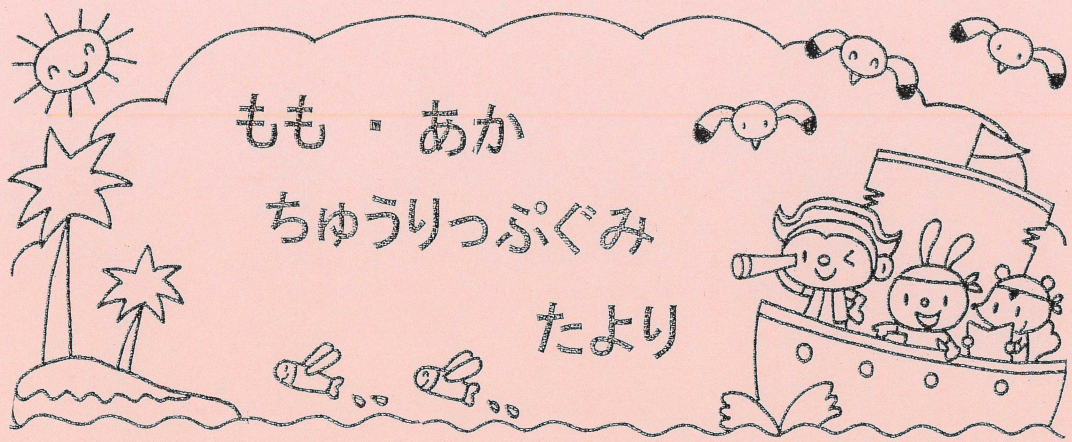 もも・あか
ちゅうりっぷぐみ
たより